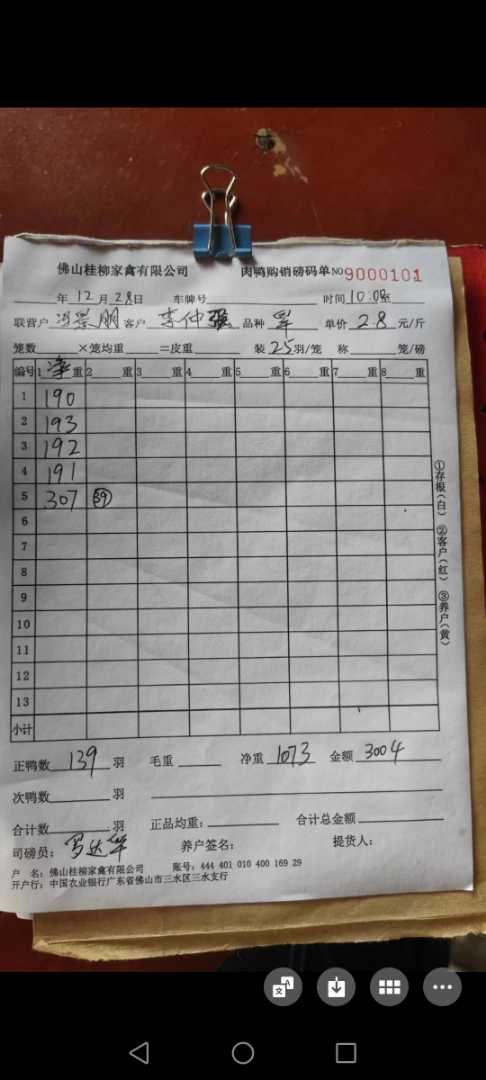 佛山桂柳家禽有限公司 肉鸭购销磅码单 NO 9000101
年 12 月 28 日 车牌号 时间 10:08
联营户 冯景朋 客户 李仲强 品种 单价 2.8 元/斤
笼数 ×笼均重 =皮重 装 25 羽/笼 称 笼/磅
编号 1 净 重 2 重 3 重 4 重 5 重 6 重 7 重 8 重
1 190
2 193
3 192
4 191
5 307 39
6
7
8
9
10
11
12
13
小计
①存根(白) ②客户(红) ③养户(黄)
正鸭数 139 羽 毛重 净重 1073 金额 3004
次鸭数 羽
合计数 羽 正品均重: 合计总金额
司磅员: 罗达华 养户签名: 提货人:
户 名: 佛山桂柳家禽有限公司 账号: 444 401 010 400 169 29
开户行: 中国农业银行广东省佛山市三水区三水支行